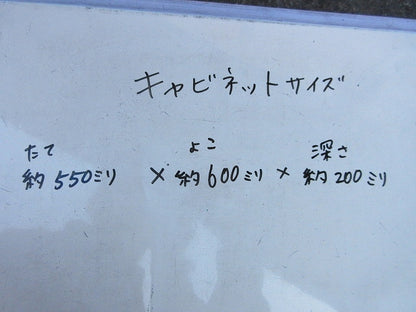 キャビネットサイズ
たて よこ 深さ
約550ミリ × 約600ミリ × 約200ミリ